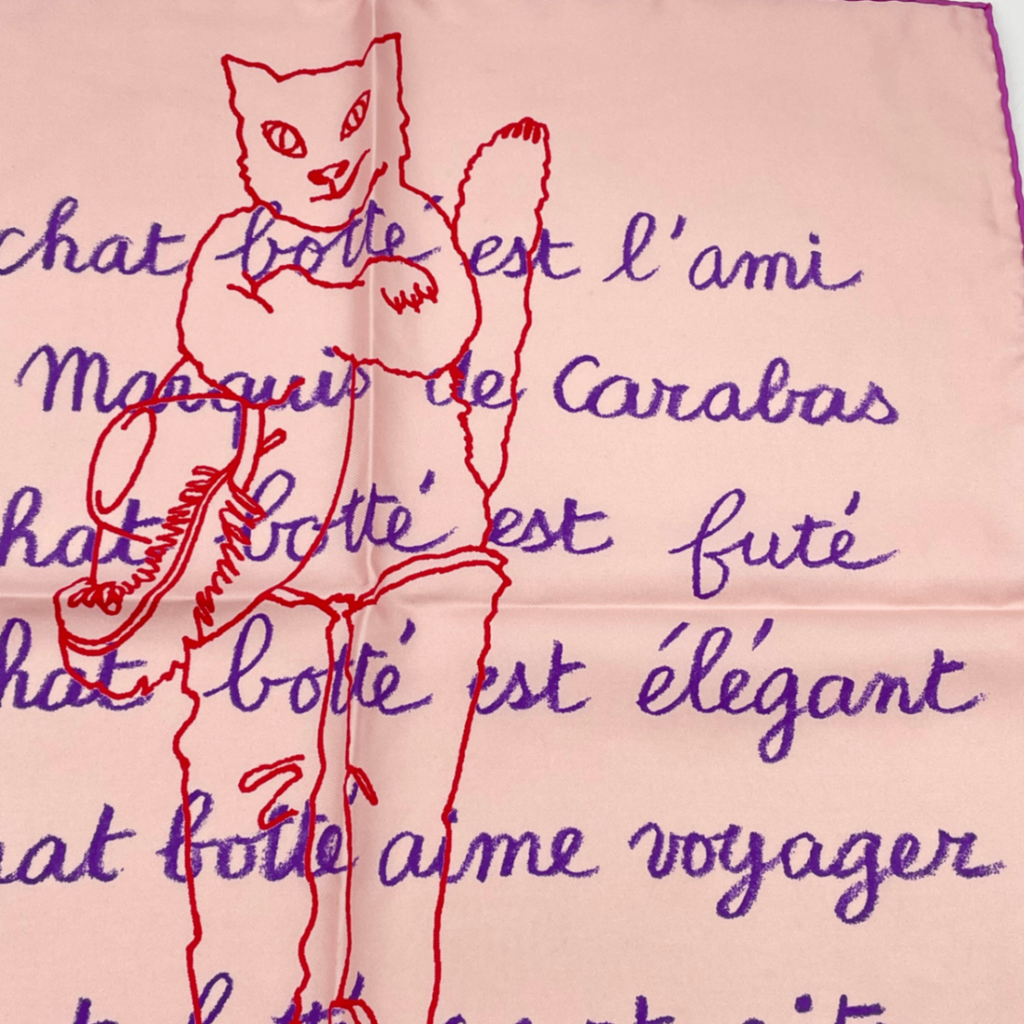 chat botté est l'ami
Marquis de Carabas
hat botté est futé
hat botté est élégant
hat botté aime voyager
botté